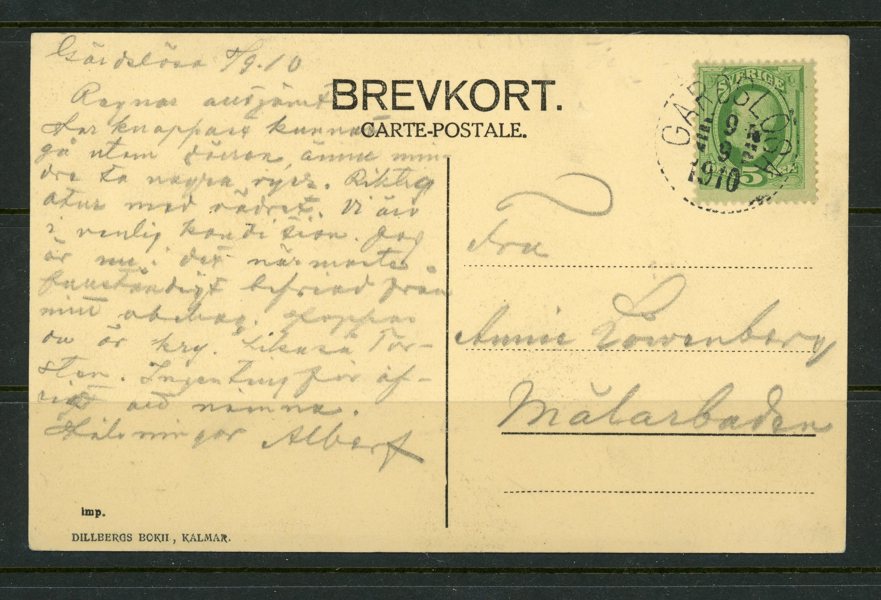 Gärdslösa 8/9.10
Ragnar
Har knappast kunnat
gå utom dörren, ännu min-
dre ta några vyer. Riktig
otur med vädret. Vi äro
i venlig kondition. Jag
är nu i det närmaste
fullständigt befriad från
mitt obehag. Hoppas
du är kry. Likaså Tor-
sten. Ingenting för öf-
rigt att nämna.
Hälsningar Albert
BREVKORT.
CARTE-POSTALE.
SVERIGE
5
GÄRDSLÖSA
9
9
1910
Fru
Annie Löwenberg
Mälarbaden
imp.
DILLBERGS BOKH, KALMAR.